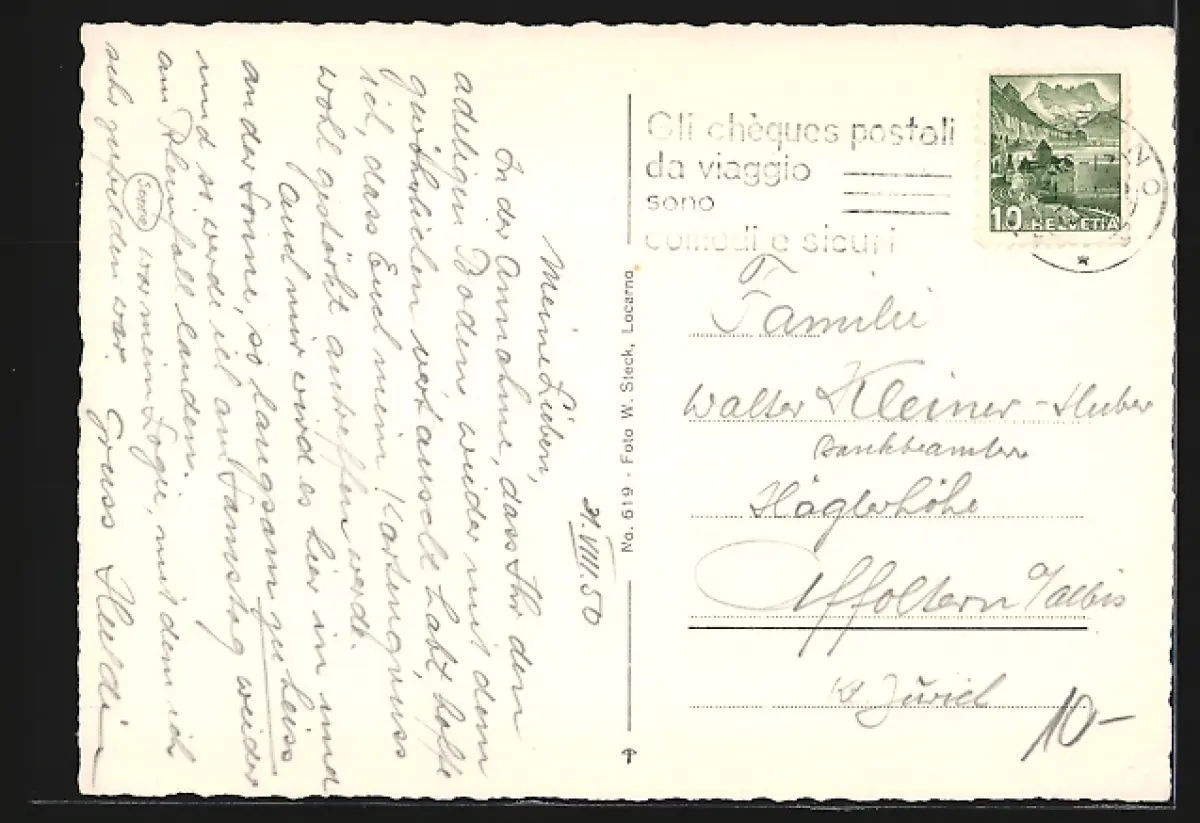 31.VIII.50
Meine Lieben,
In der Annahme, dass Ihr den
adeligen Boden wieder mit dem
gewöhnlichen vertauscht habt, hoffe
ich, dass Euch mein Kartengruss
wohl gestärkt antreffen werde.
Auch mir wird es hier in und
an der Sonne, so langsam zu heiss
und so werde ich am Samstag wieder
am Rheinfall landen.
war mein Logie, mit dem ich
sehr zufrieden war. Gruss Heidi
No. 619 - Foto W. Steck, Locarno
Gli chèques postali
da viaggio
sono
comodi e sicuri
10 HELVETIA
Familie
Walter Kleiner-Huber
Bankbeamter
Höglerhöhe
Affoltern a/Albis
Kt. Zürich
10-